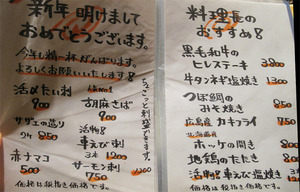 新年 明けまして
おめでとうございます。
今年も精一杯がんばります。
よろしくお願いいたします
ちょこっと刺盛できます。
活〆たい刺
900
胡麻さば
900
サザエの造り
850
活物
車えび刺
3本 1200
赤ナマコ
500
サーモン刺
750
価格は税抜き価格です。
料理長の
おすすめ
黒毛和牛の
ヒレステーキ 3800
牛タンネギ塩焼き
1300
つぼ鯛の
みそ焼き 850
広島産 カキフライ
750
北海道産
ホッケの開き 800
地鶏のたたき 800
活物 車えび塩焼き
3本 1200
価格は税抜き価格です。